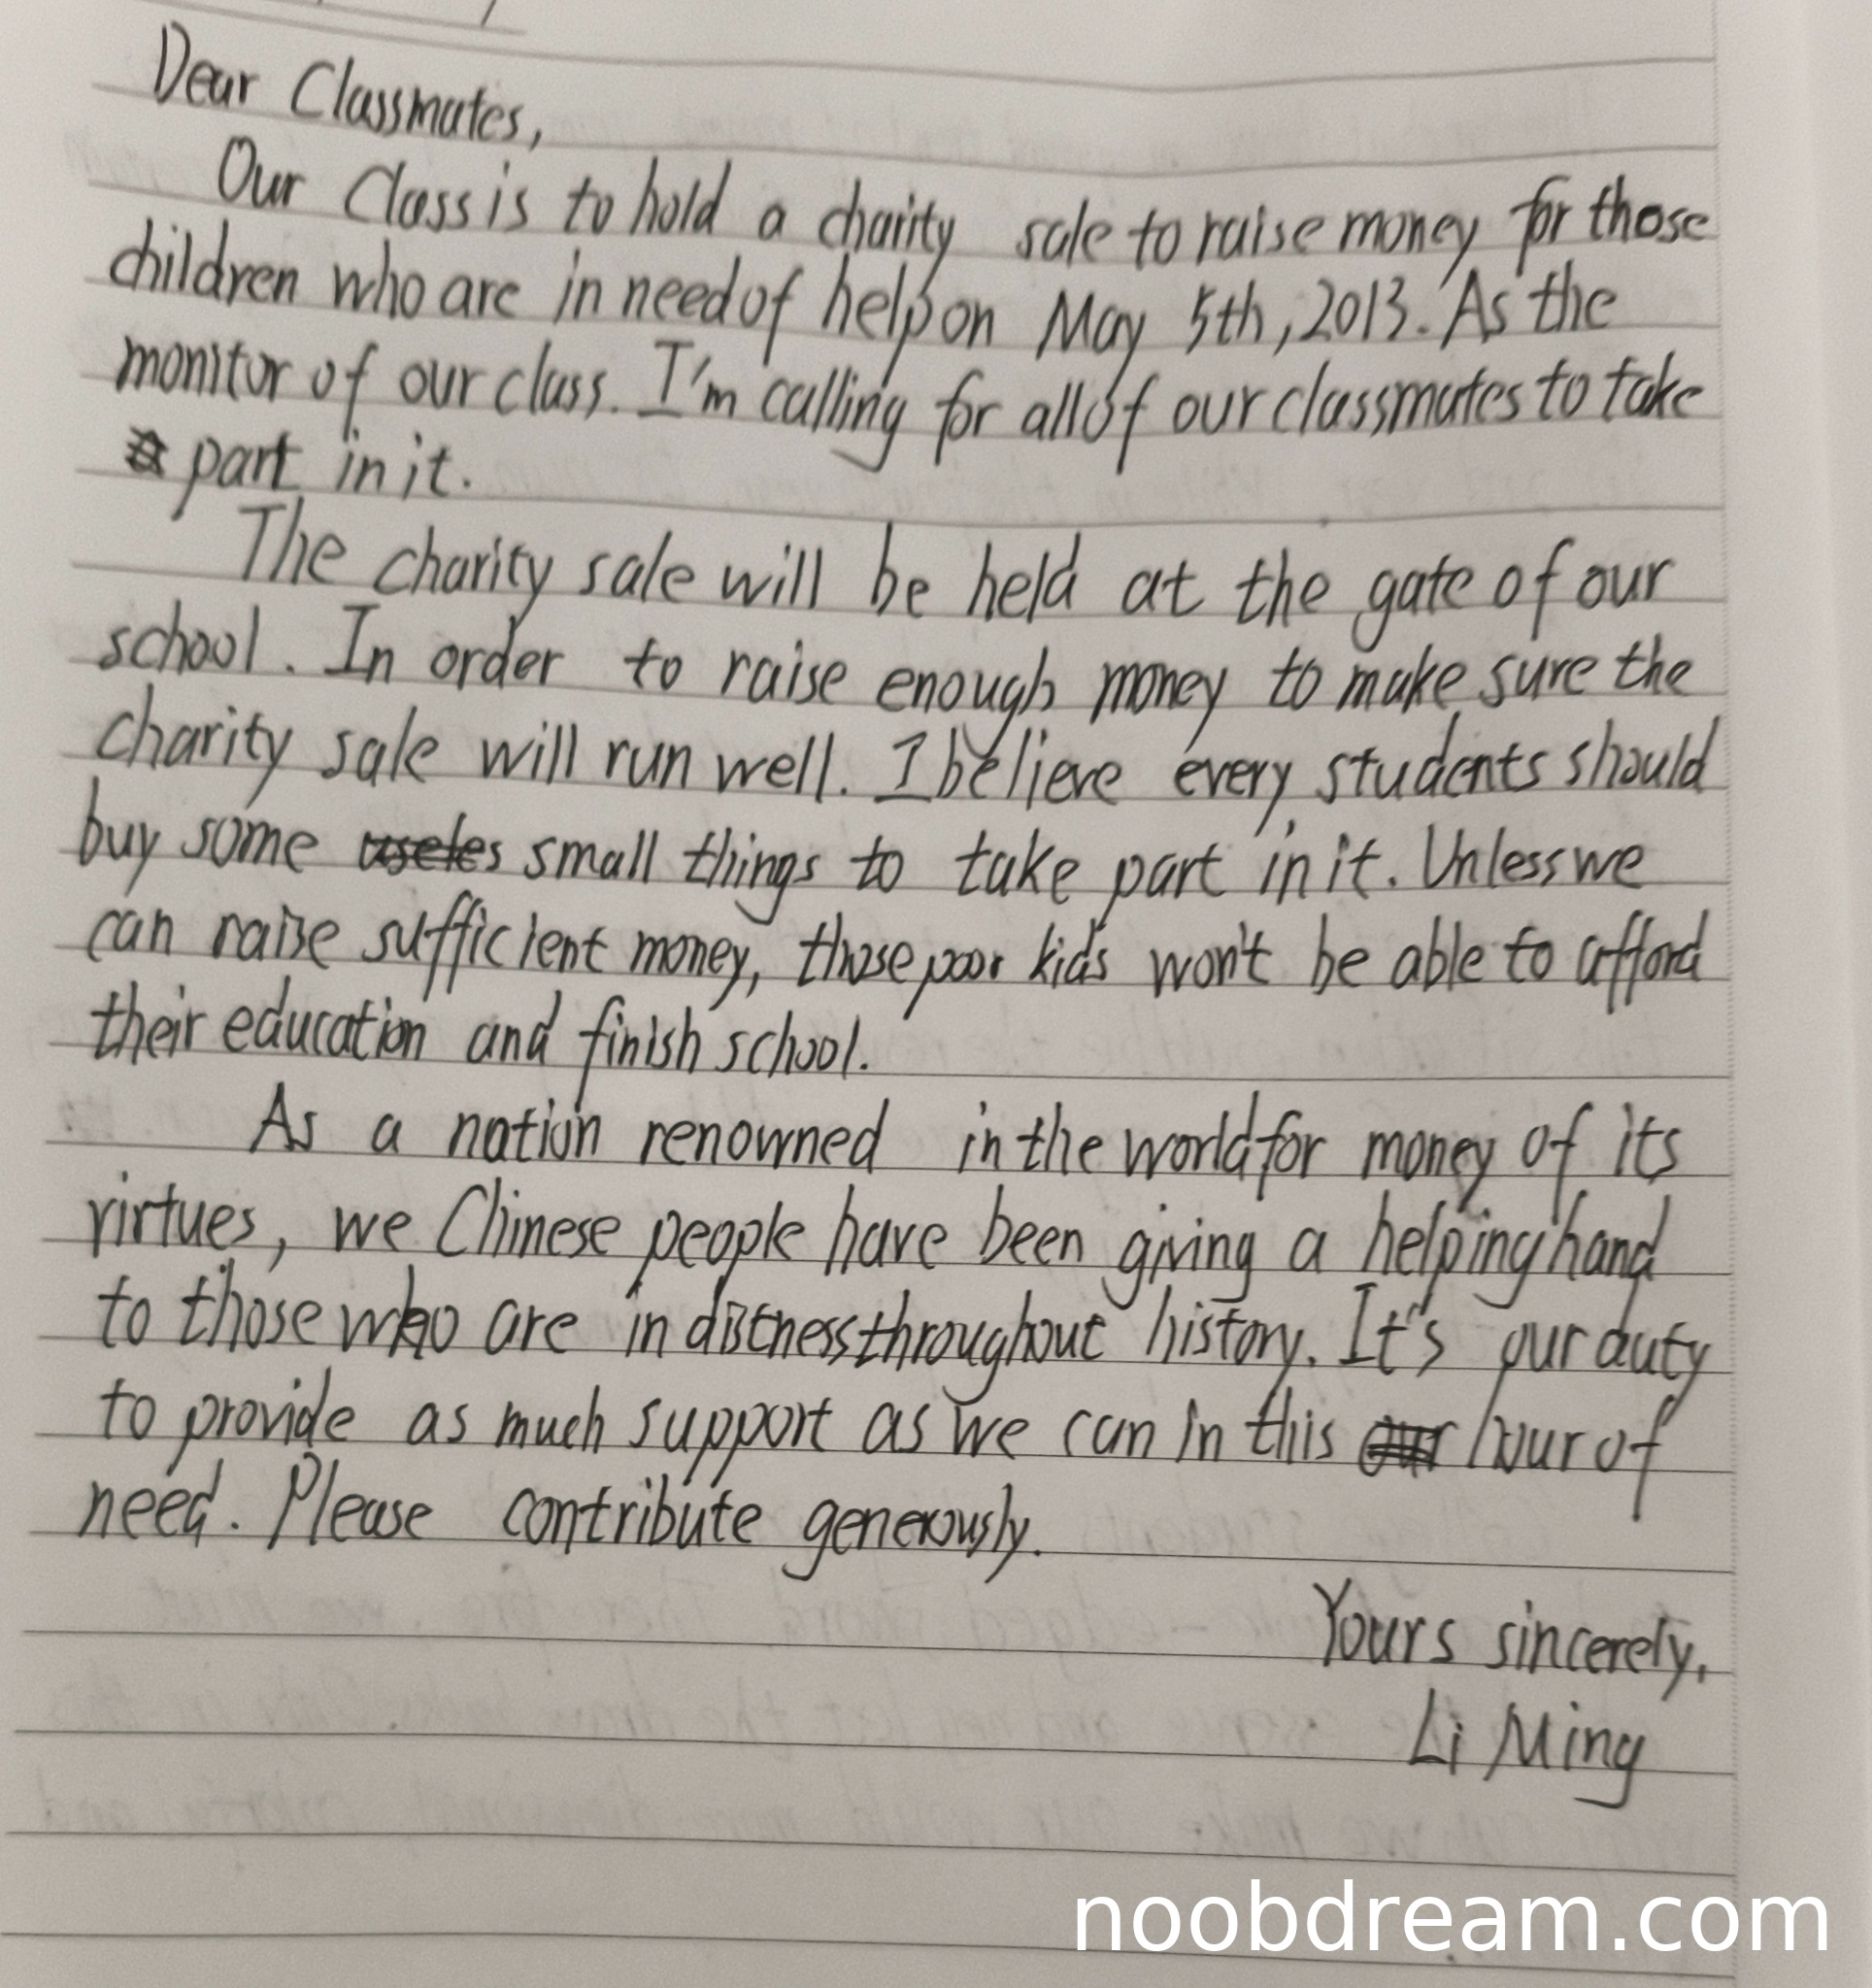 Dear Classmates,
Our Class is to hold a charity sale to raise money for those
children who are in need of help on May 5th, 2013. As the
monitor of our class. I'm calling for all of our classmates to take
part in it.
The charity sale will be held at the gate of our
school. In order to raise enough money to make sure the
charity sale will run well. I believe every students should
buy some small things to take part in it. Unless we
can raise sufficient money, those poor kids won't be able to afford
their education and finish school.
As a nation renowned in the world for money of its
virtues, we Chinese people have been giving a helping hand
to those who are in distness throughout history. It's our duty
to provide as much support as we can in this hour of
need. Please contribute generously.
Yours sincerely,
Li Ming
noobdream.com